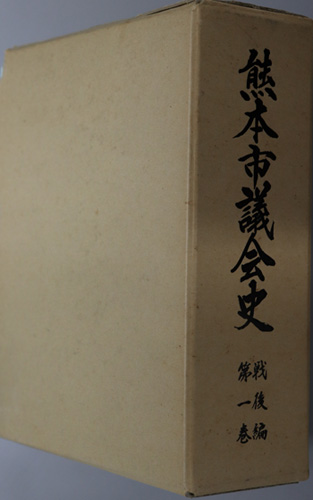 熊本市議会史
戦後編
第一巻